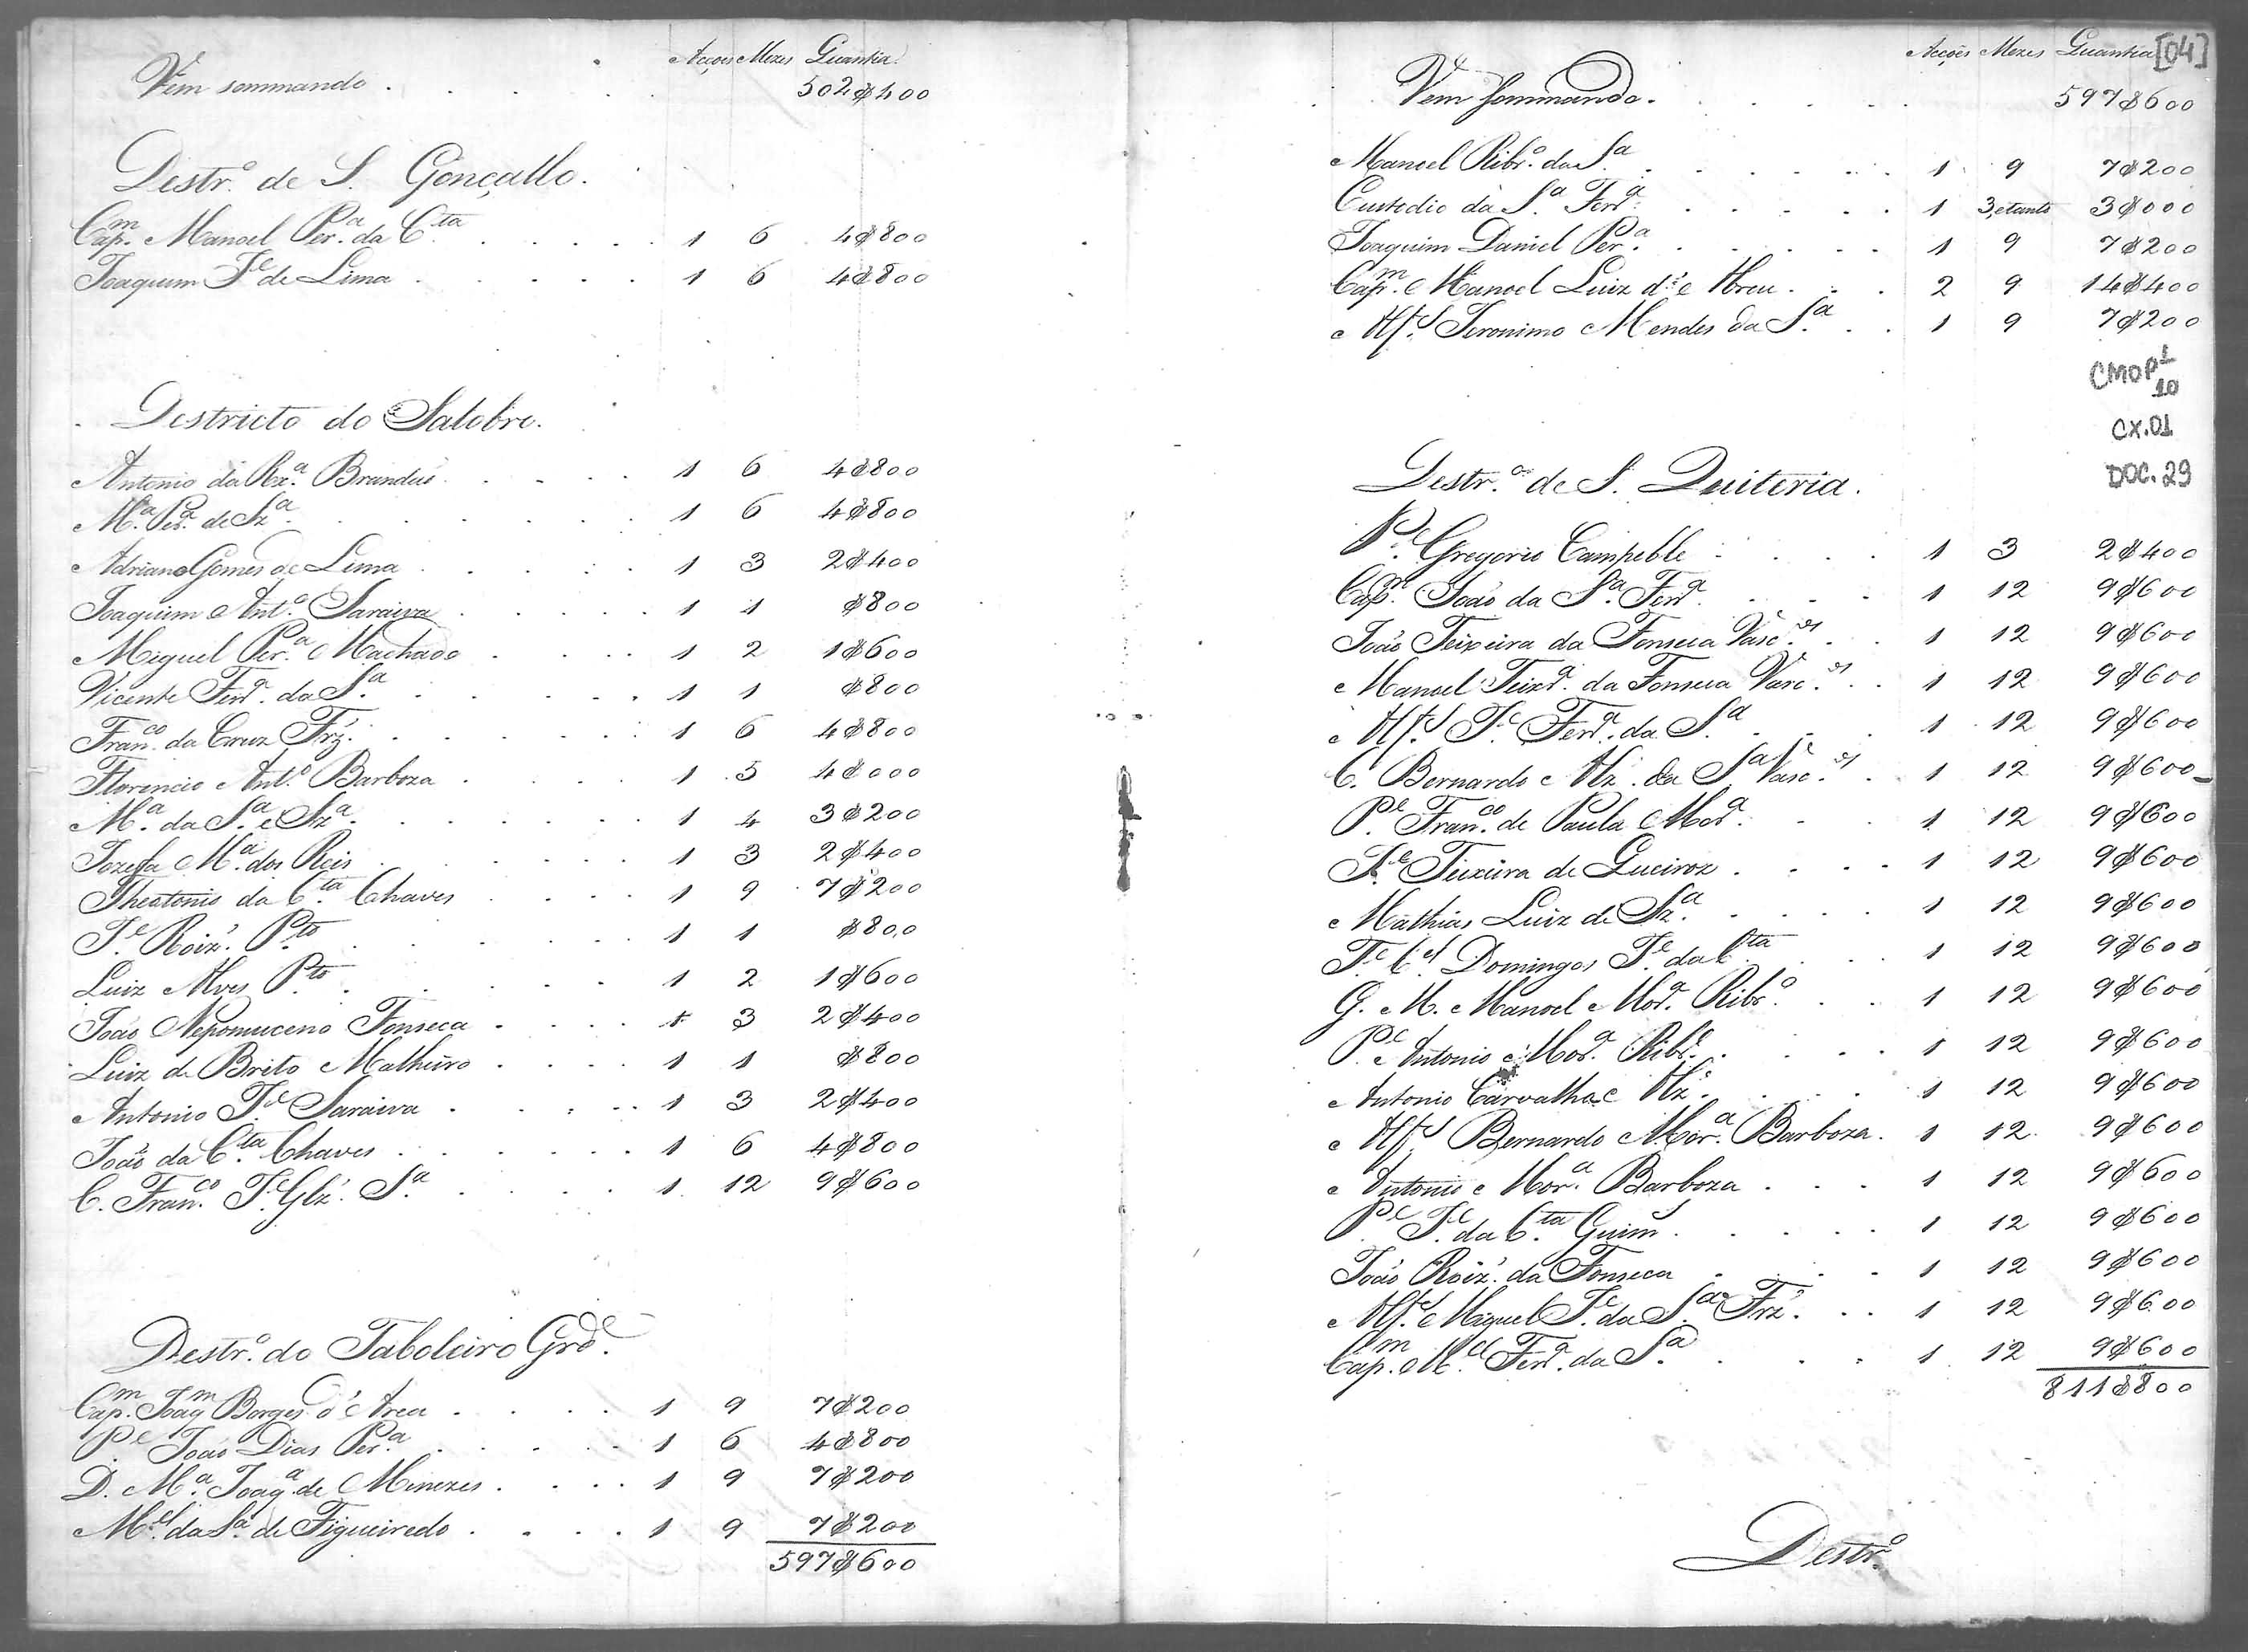 Acções Mezes Quantia
Vem sommando . . . . . 502$400
Destr.º de S. Gonçallo.
Cap.m Manoel Per.a da C.ta . . . . 1 6 4$800
Joaquim J.e de Lima . . . . . 1 6 4$800
Destricto do Salobro.
Antonio da Rx.a Brandaõ . . . . 1 6 4$800
M.a Per.a de Sz.a . . . . . . 1 6 4$800
Adriano Gomes de Lima . . . . . 1 3 2$400
Joaquim Ant.º Saraiva . . . . 1 1 $800
Miguel Per.a Machado . . . . 1 2 1$600
Vicente Ferr.a da S.a . . . . . 1 1 $800
Fran.co da Cruz Frz.' . . . . . 1 6 4$800
Florencio Ant.º Barboza . . . . 1 5 4$000
M.a da S.a e Sz.a . . . . . . 1 4 3$200
Jozefa M.a dos Reis . . . . . . 1 3 2$400
Theotonio da C.ta Chaves . . . . 1 9 7$200
J.e Roiz.' P.to . . . . . . 1 1 $800
Luiz Alves P.to . . . . . . 1 2 1$600
João Nepomuceno Fonseca . . . . 1 3 2$400
Luiz de Brito Malheiro . . . . 1 1 $800
Antonio J.e Saraiva . . . . . 1 3 2$400
João da C.ta Chaves . . . . . . 1 6 4$800
C. Fran.co J.e Glz.' S.a . . . . 1 12 9$600
Destr.º do Taboleiro Grd.e
Cap.m Joaq.m Borges d'Area . . . . 1 9 7$200
P.e João Dias Per.a . . . . . 1 6 4$800
D. M.a Joaq.a de Menezes . . . . 1 9 7$200
M.el da S.a de Figueiredo . . . . 1 9 7$200
597$600
Acções Mezes Quantia [04]
Vem sommando . . . . . 597$600
Manoel Ribr.º da S.a . . . . . . 1 9 7$200
Custodio da S.a Ferr.a . . . . . 1 3, e tanto 3$000
Joaquim Daniel Per.a . . . . . 1 9 7$200
Cap.m Manoel Luiz d'Abreu . . . 2 9 14$400
Alf.es Jeronimo Mendes da S.a . . 1 9 7$200
CMOP 1
10
CX.01
DOC.29
Destr.º de S. Quiteria.
P.e Gregorio Campeble . . . . 1 3 2$400
Cap.m João da S.a Ferr.a . . . 1 12 9$600
João Teixeira da Fonseca Vasc.os . . 1 12 9$600
Manoel Teixr.a da Fonseca Vasc.os . . 1 12 9$600
Alf.es J.e Ferr.a da S.a . . . 1 12 9$600
C. Bernardo Alz.' da S.a Vasc.os . 1 12 9$600
P.e Fran.co de Paula Mor.a . . 1 12 9$600
J.e Teixeira de Queiroz . . . . 1 12 9$600
Mathias Luiz de Sz.a . . . . 1 12 9$600
T.e C.el Domingos J.e da C.ta . . . 1 12 9$600
G. M. Manoel Mor.a Ribr.º . . 1 12 9$600
P.e Antonio Mor.a Ribr.º . . . . 1 12 9$600
Antonio Carvalho Alz.' . . . . 1 12 9$600
Alf.es Bernardo Mor.a Barboza . 1 12 9$600
Antonio Mor.a Barboza . . . 1 12 9$600
P.e J.e da C.ta Guim . . . . . 1 12 9$600
João Roiz.' da Fonseca . . . . 1 12 9$600
Alf.es Miguel J.e da S.a Frz.' . . 1 12 9$600
Cap.m M.el Ferr.a da S.a . . . . 1 12 9$600
811$800
Destr.º